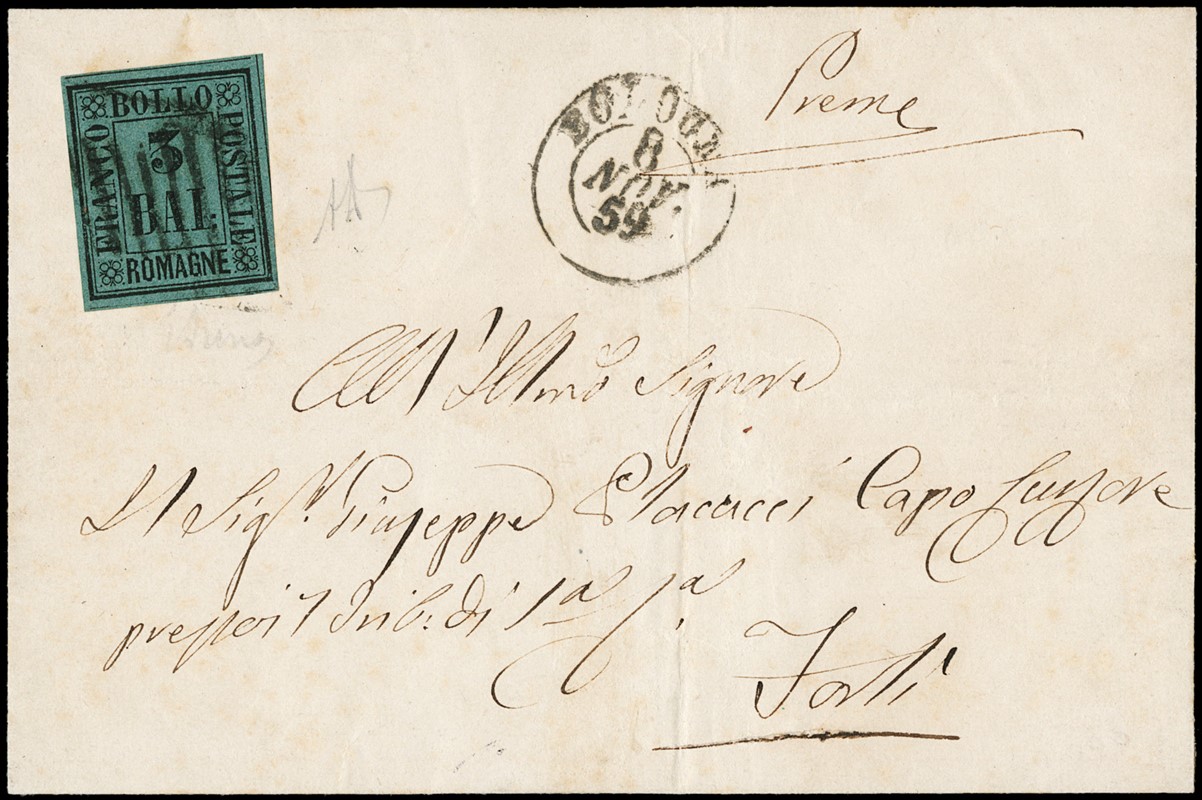 BOLLO
FRANCO
POSTALE
3
BAI.
ROMAGNE
BOLOGNA
8
NOV.
59
Preme
All'Illmo Signore
Il Sig.r Giuseppe Capo Cursore
presso il Trib: di 1a
Forlì